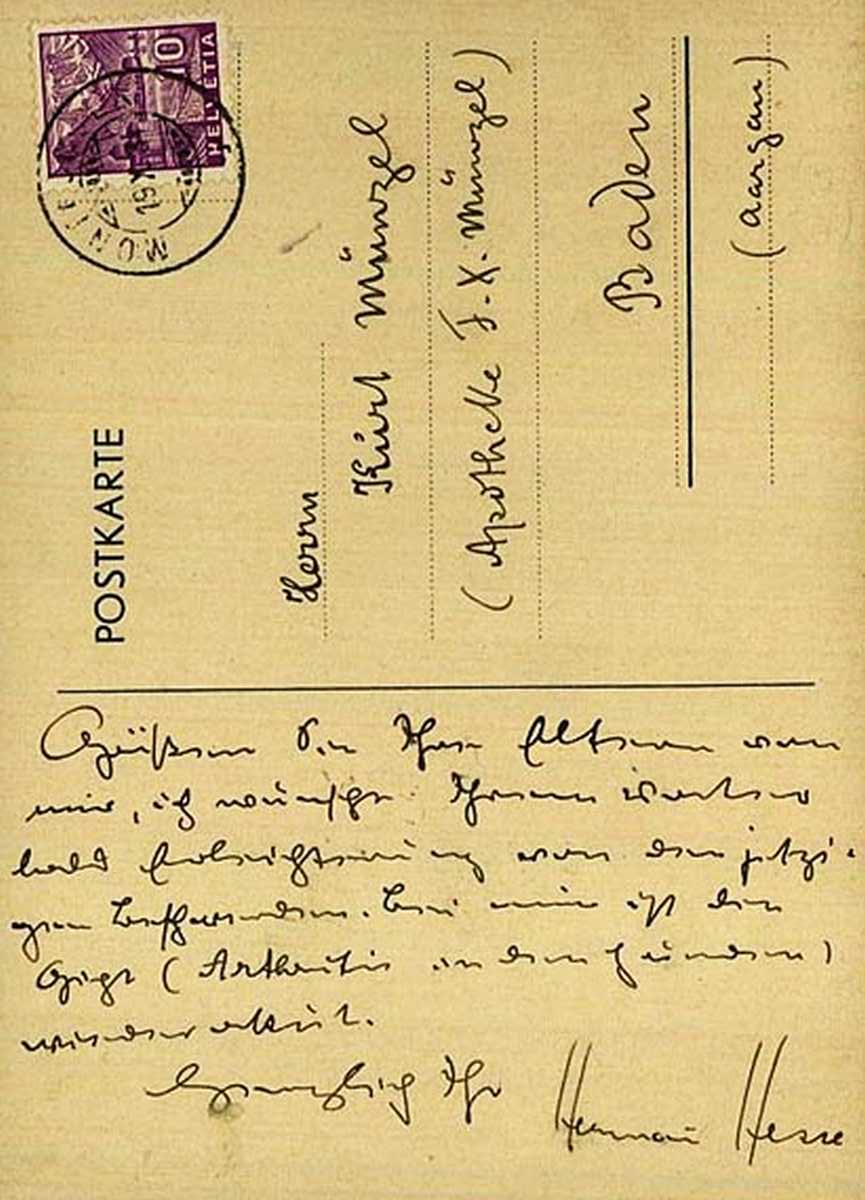 10
HELVETIA
POSTKARTE
Herrn
Kurt Münzel
(Apotheke F. X. Münzel)
Baden
(Aargau)
Grüßen Sie Ihre Eltern von
mir, ich wünsche Ihrem Vater
bald Erleichterung von den jetzi-
gen Beschwerden. Bei mir ist die
Gicht (Arthritis in den Händen)
wieder akut.
Herzlich Ihr
Hermann Hesse